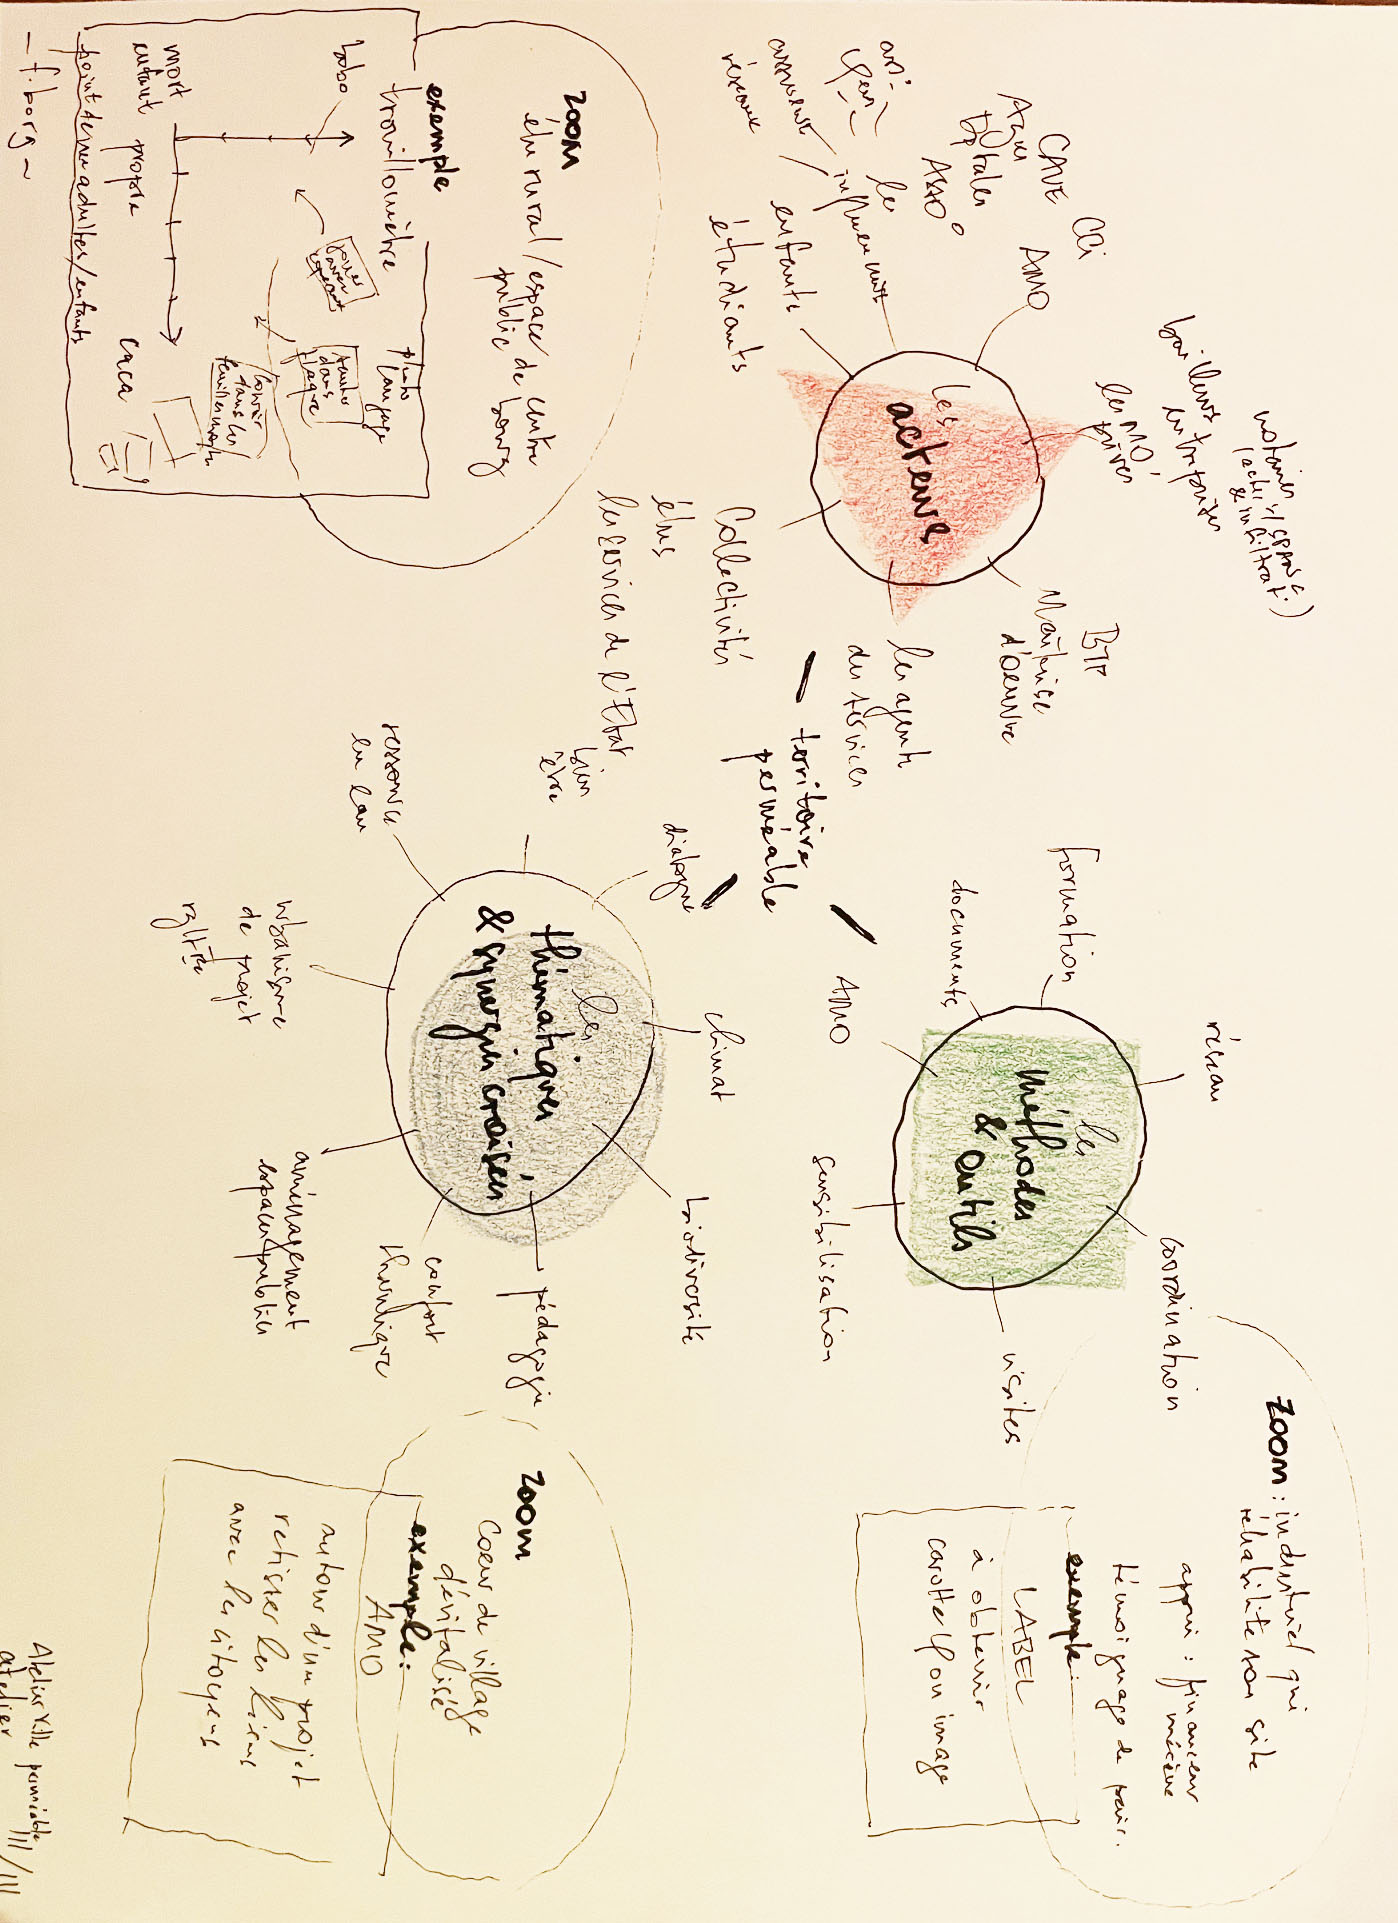 ZOOM : industriel qui
réhabilite son site
appui : financeur
mécène
témoignage de pair.
exemple :
LABEL
à obtenir
carotte / on image
notaires
bailleurs
entreprises
les MO
privés
CCi
CAUE
AMO
ASAO
les
influenceurs
assureurs
réseaux
enfants
étudiants
les
acteurs
BTP
Maîtrise
d'oeuvre
les agents
des services
Collectivités
élus
les services de l'Etat
territoire
perméable
formation
documents
AMO
réseau
les
méthodes
& outils
coordination
sensibilisation
visites
ZOOM
élu rural / espace de centre
public de bourg
exemple
trouillomètre
bobo
mort
enfant
propre
caca
photo
langage
sauter
dans
flaque
point de vue adultes / enfants
- f. borg ~
bien
être
dialogue
ressource
en eau
urbanisme
de projet
climat
les
thématiques
& synergies croisées
biodiversité
pédagogie
confort
thermique
aménagement
espaces publics
ZOOM
Coeur de village
dévitalisé
exemple :
AMO
autour d'un projet
retisser les liens
avec les citoyens
Atelier Ville perméable
atelier III/III